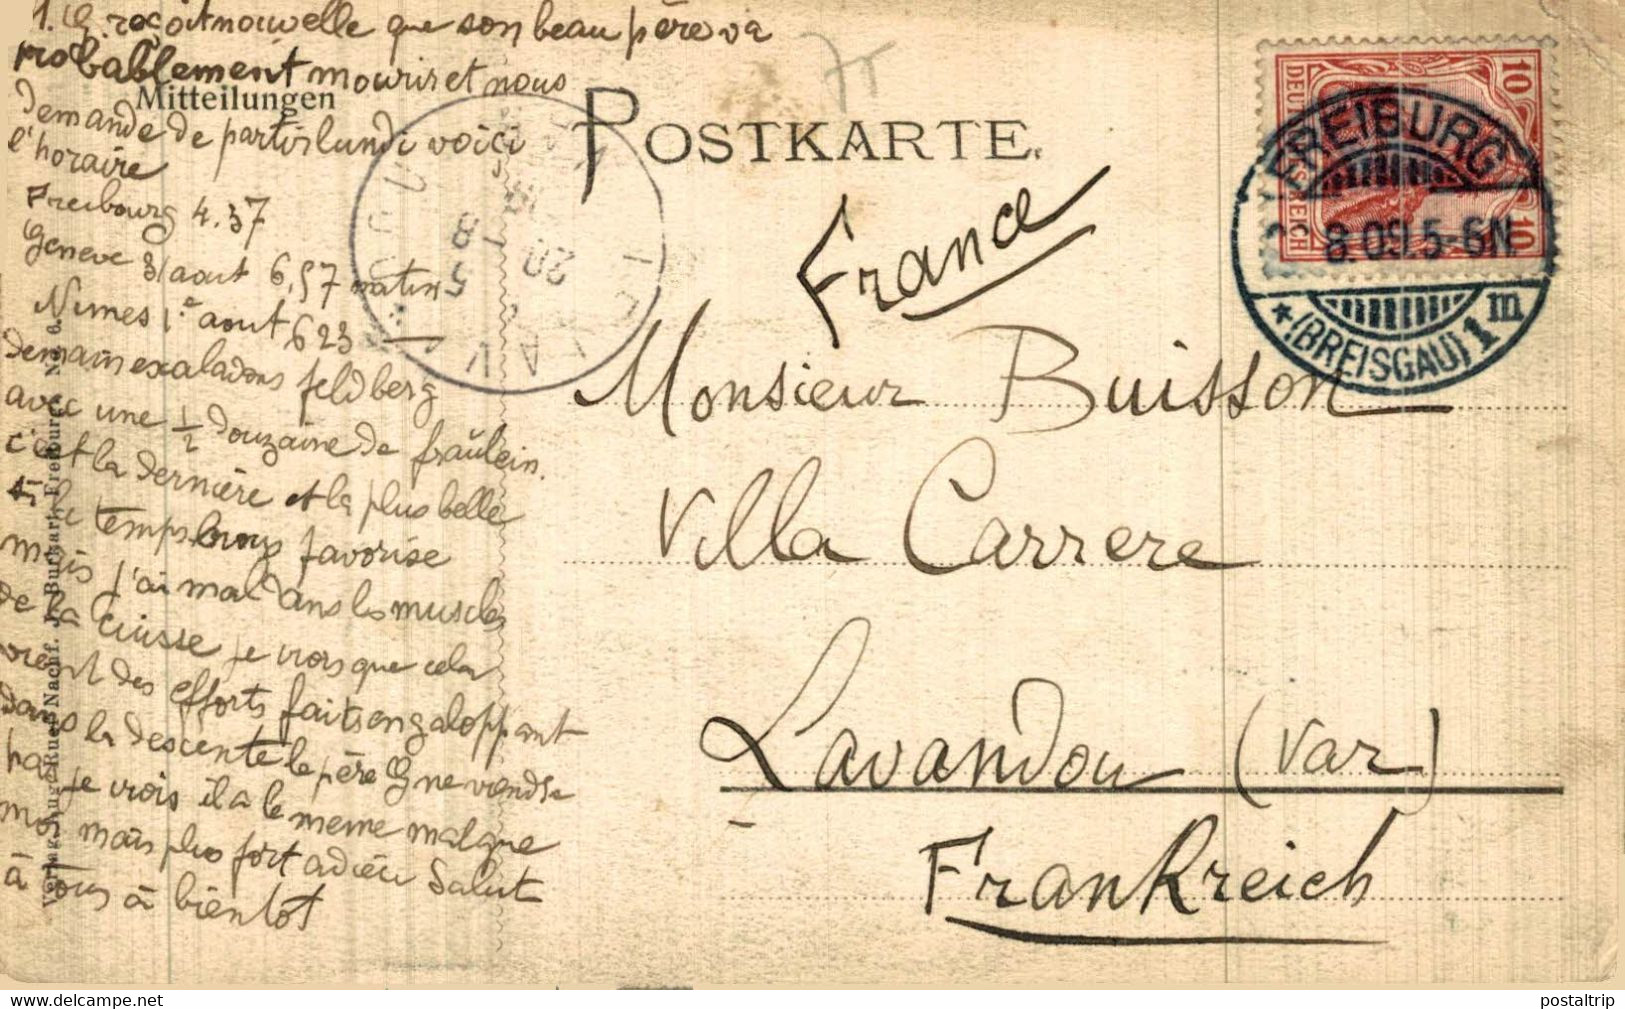 1. G. reçoit nouvelle que son beau père va
probablement mourir et nous
Mitteilungen
demande de partir lundi voici
l'horaire
Freibourg 4.37
Geneve 31 aout 6,57 matin
Nimes 1.e aout 623
demain escaladons feldberg
avec une 1/2 douzaine de fraülein.
c'est la dernière et la plus belle
le temps favorise
mais j'ai mal dans les muscles
de la Cuisse je crois que cela
vient des efforts faits en galoppant
dans la descente le père G ne viendra
pas je crois il a le meme mal que
moi mais plus fort adieu Salut
à tous à bientôt
POSTKARTE.
75
France
Monsieur Buisson
Villa Carrere
Lavandou (Var)
Frankreich
DEUTSCHES REICH
10
10
FREIBURG
8.09.5-6N
* (BREISGAU) 1 m
LE LAVANDOU
20
5 - 8
Verlag Aug. Ruef Nachf. J. Burkart, Freiburg No. 6.
postaltrip
© DELCAMPE NET